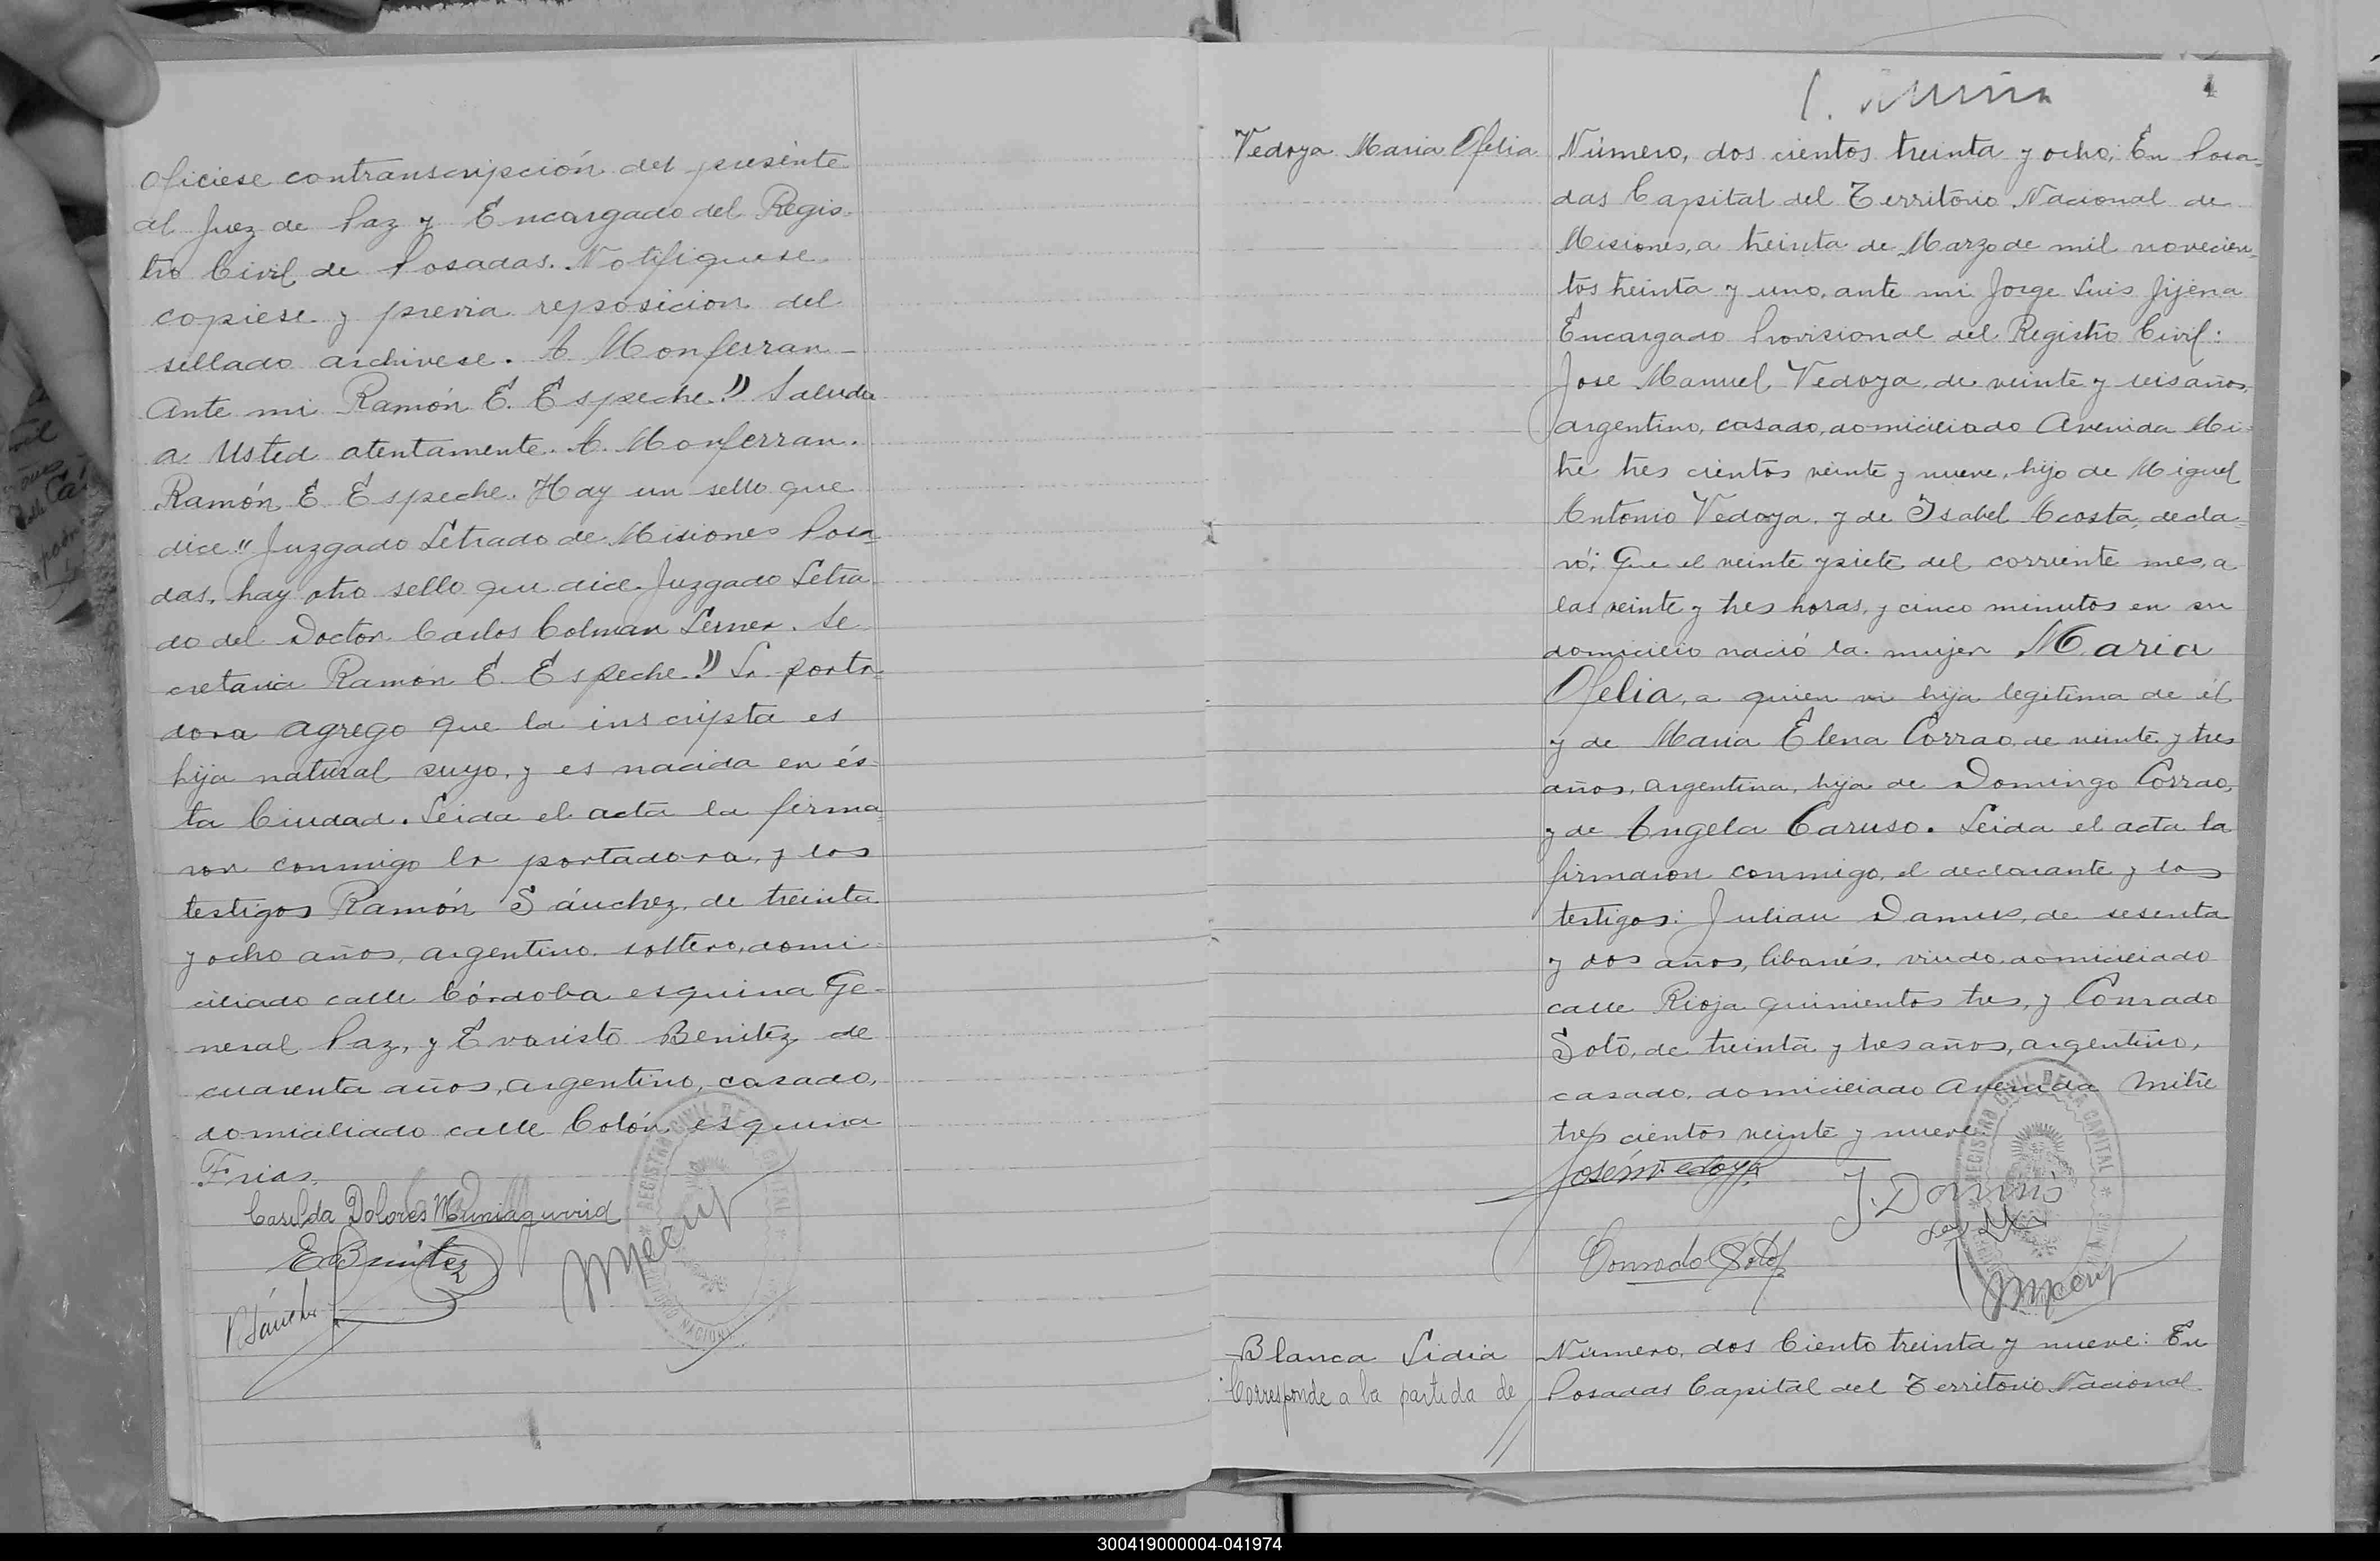 Oficiese contranscripción del presente
al Juez de Paz y Encargado del Regis-
tro Civil de Posadas. Notifiquese
copiese y previa reposicion del
sellado archivese. A. Monferran -
Ante mi Ramón E. Espeche." Saluda
a Usted atentamente. A. Monferran.
Ramón E Espeche. Hay un sello que
dice "Juzgado Letrado de Misiones Posa-
das, hay otro sello que dice Juzgado Letra-
do del Doctor Carlos Colman Lerner. Se
cretaria Ramón E. Espeche." La porta-
dora agrego que la inscripta es
hija natural suyo, y es nacida en és-
ta Ciudad. Leida el acta la firma-
ron conmigo la portadora, y los
testigos Ramón Sánchez, de treinta
y ocho años, argentino. soltero, domi-
ciliado calle Córdoba esquina Ge-
neral Paz, y Evaristo Benitez de
cuarenta años, argentino, casado,
domiciliado calle Colón esquina
Frias.
Casilda Dolores Muniagurria
E Benitez
R Sánchez
REGISTRO CIVIL DE LA CAPITAL
4
Vedoya Maria Ofelia
Número, dos cientos treinta y ocho: En Posa-
das Capital del Territorio Nacional de
Misiones, a treinta de Marzo de mil novecien-
tos treinta y uno, ante mi Jorge Luis Jijena
Encargado Provisional del Registro Civil:
Jose Manuel Vedoya, de veinte y seis años,
argentino, casado, domiciliado Avenida Mi-
tre tres cientos veinte y nueve, hijo de Miguel
Antonio Vedoya, y de Isabel Acosta, decla-
ró: Que el veinte y siete del corriente mes, a
las veinte y tres horas, y cinco minutos en su
domicilio nació la mujer Maria
Ofelia, a quien vi hija legitima de él
y de Maria Elena Corrao, de veinte y tres
años, argentina, hija de Domingo Corrao,
y de Angela Caruso. Leida el acta la
firmaron conmigo, el declarante y los
testigos: Julian Damus, de sesenta
y dos años, libanés, viudo, domiciliado
calle Rioja quinientos tres, y Conrado
Soto, de treinta y tres años, argentino,
casado, domiciliado Avenida Mitre
tres cientos veinte y nueve
José M Vedoya
J. Damus
Conrado Soto
REGISTRO CIVIL DE LA CAPITAL
Blanca Lidia
Corresponde a la partida de
Número, dos Ciento treinta y nueve: En
Posadas Capital del Territorio Nacional
300419000004-041974